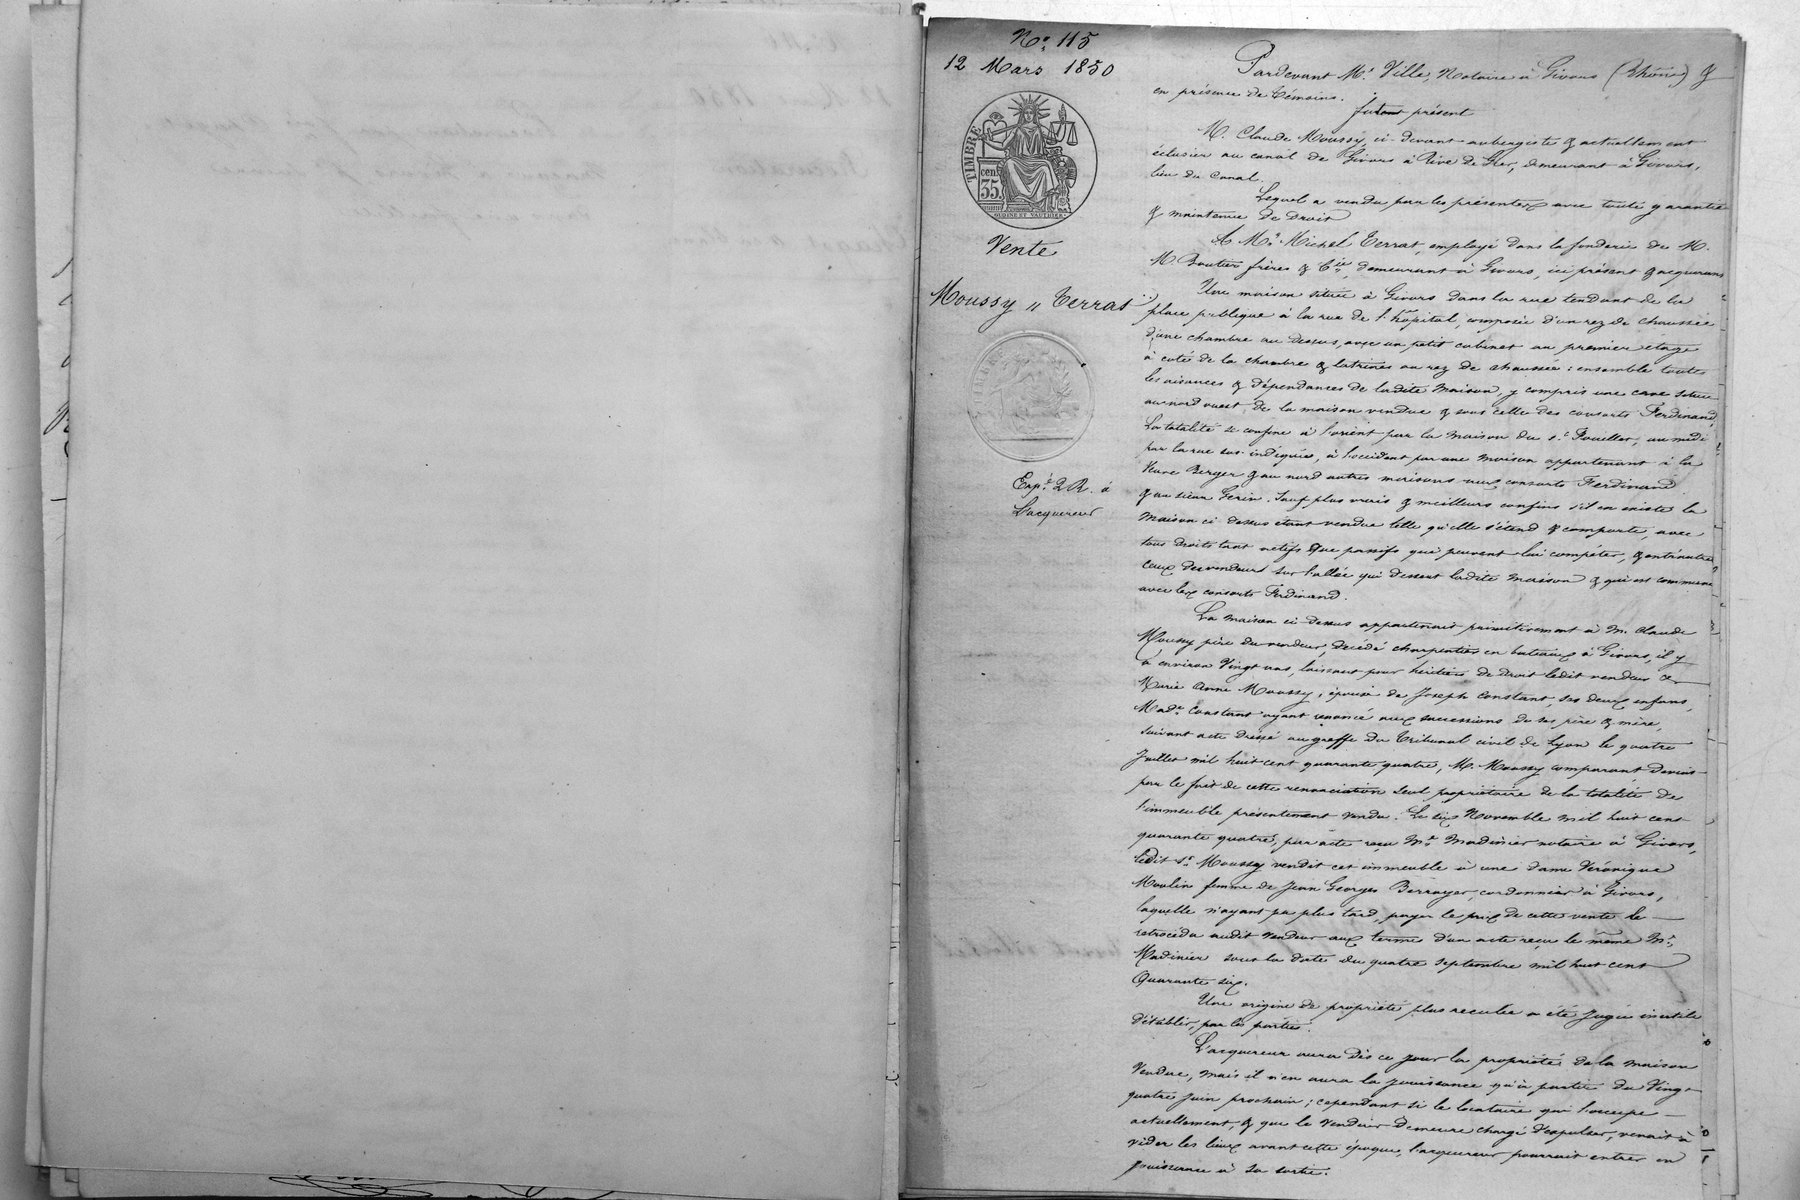 N° 115
12 Mars 1850
TIMBRE
cen.
35.
OUDINÉ ET VAUTHIER
Vente
Moussy " Terrat
Exp.é 2 R. à
L'acquereur
Pardevant Me. Ville, Notaire à Givors (Rhône) &
en présence de témoins.
fut présent
M. Claude Moussy, ci-devant aubergiste & actuellement
éclusier au canal de Givors à Rive de Gier, demeurant à Givors,
lieu du Canal.
Lequel a vendu par les présentes avec toute garantie
& maintenue de Droit
A Mr. Michel Terrat, employé dans la fonderie de M.
M. Boutier frères & Cie, demeurant à Givors, ici présent & acquereur
Une maison située à Givors dans la rue tendant de la
place publique à la rue de l'hôpital, composée d'un rez de chaussée
d'une chambre au dessus, avec un petit cabinet au premier étage
à coté de la chambre & latrines au rez de chaussée : ensemble toutes
les aisances & dépendances de ladite maison, y compris une cave située
au nord ouest, de la maison vendue & sous celle des consorts Ferdinand,
La totalité se confine à l'orient par la maison du sr. Fouillet, au midi
par la rue sus-indiquée, à l'occident par une maison appartenant à la
Veuve Berger & au nord autres maisons aux consorts Ferdinand
& au sieur Gerin. Sauf plus vrais & meilleurs confins s'il en existe la
maison ci dessus étant vendue telle qu'elle s'étend & comporte, avec
tous droits tant actifs que passifs qui peuvent lui compéter, & entr'autres
ceux des vendeurs sur l'allée qui dessert ladite maison & qui est commune
avec les consorts Ferdinand.
La maison ci dessus appartenait primitivement à M. Claude
Moussy père du vendeur, décédé charpentier en bateaux à Givors, il y
a environ vingt ans, laissant pour héritiers de droit ledit vendeur &
Marie Anne Moussy, épouse de Joseph Constant, ses deux enfans,
Made. Constant ayant renoncé aux successions de ses père & mère,
suivant acte dressé au greffe du Tribunal civil de Lyon le quatre
Juillet mil huit cent quarante quatre, M. Moussy comparant devint
par le fait de cette renonciation seul propriétaire de la totalité de
l'immeuble présentement vendu. Le six Novembre mil huit cent
quarante quatre, par acte reçu Me. Madinier notaire à Givors,
ledit sr. Moussy vendit cet immeuble à une dame Véronique
Moulin femme de Jean Georges Berrayer, cordonnier à Givors,
laquelle n'ayant pu plus tard, payer le prix de cette vente le
retrocéda audit vendeur aux termes d'un acte reçu le même Me.
Madinier sous la date du quatre septembre mil huit cent
Quarante six.
Une origine de propriété plus reculée a été jugée inutile
d'établir, par les parties.
L'acquereur aura dès ce jour la propriété de la maison
vendue, mais il n'en aura la jouissance qu'à partir du Vingt
quatre juin prochain ; cependant si le locataire qui l'occupe
actuellement, & que le vendeur demeure chargé d'expulser, venait à
vider les lieux avant cette époque, l'acquereur pourrait entrer en
jouissance à sa sortie.